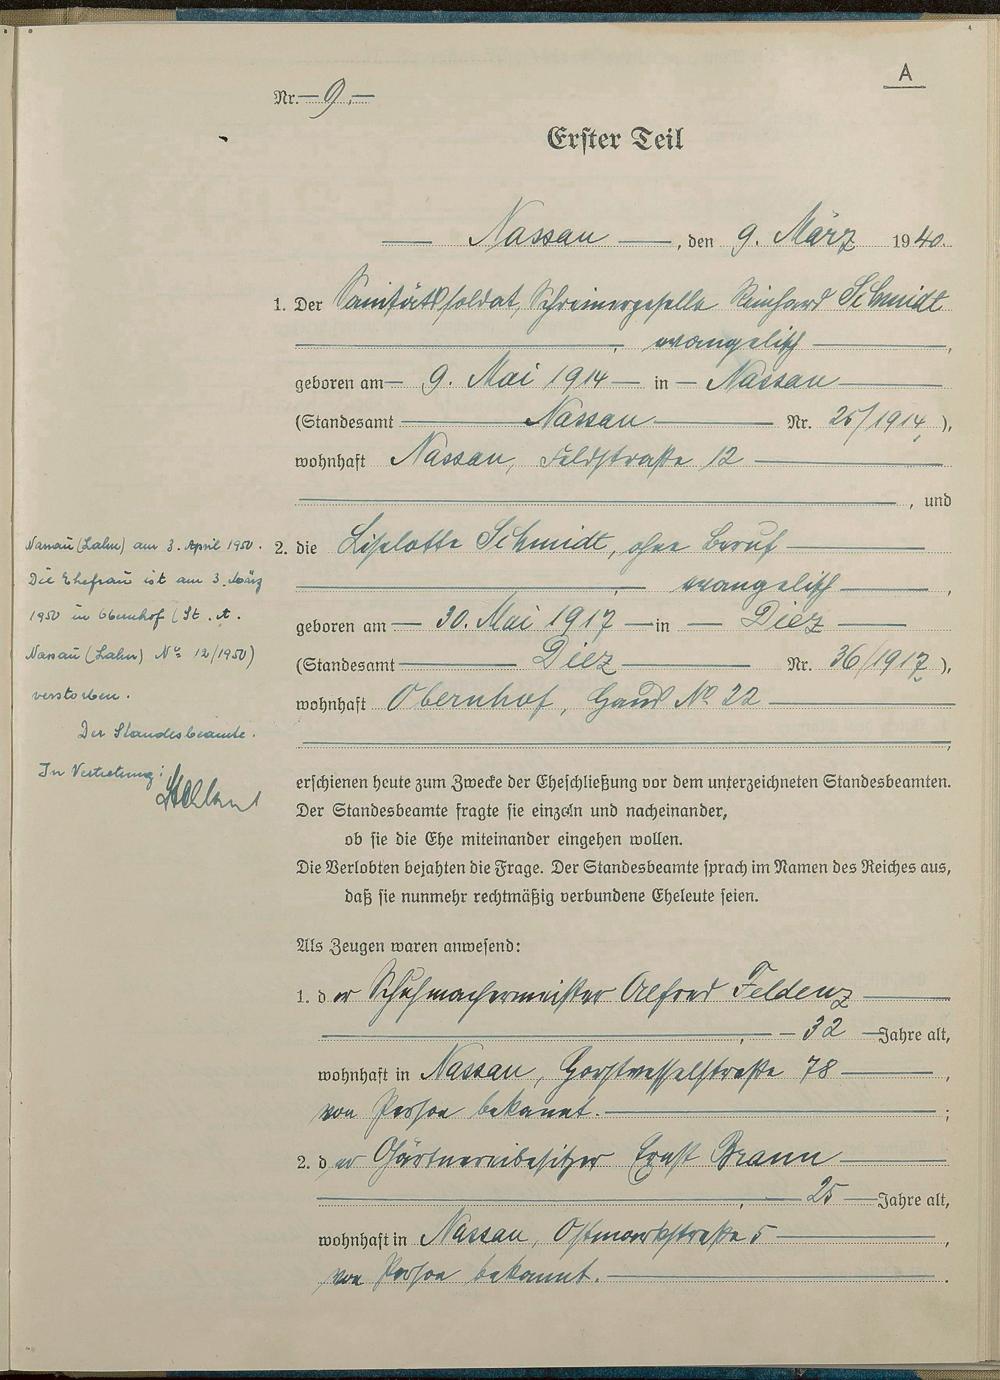 A
Nr. — 9. —
Erster Teil
— Nassau —, den 9. März 1940.
1. Der Sanitätssoldat, Schreinergeselle Reinhard Schmidt
—, evangelisch —,
geboren am — 9. Mai 1914 — in — Nassau —
(Standesamt — Nassau — Nr. 25/1914),
wohnhaft Nassau, Feldstraße 12 —
—, und
2. die Liselotte Schmidt, ohne Beruf —
—, evangelisch —,
geboren am — 30. Mai 1917 — in — Diez —
(Standesamt — Diez — Nr. 36/1917),
wohnhaft Obernhof, Haus No 22 —
—,
erschienen heute zum Zwecke der Eheschließung vor dem unterzeichneten Standesbeamten.
Der Standesbeamte fragte sie einzeln und nacheinander,
ob sie die Ehe miteinander eingehen wollen.
Die Verlobten bejahten die Frage. Der Standesbeamte sprach im Namen des Reiches aus,
daß sie nunmehr rechtmäßig verbundene Eheleute seien.
Als Zeugen waren anwesend:
1. der Schuhmachermeister Alfred Feldenz —
—, — 32 — Jahre alt,
wohnhaft in Nassau, Horstwesselstraße 78 —,
von Person bekannt. —;
2. der Gärtnereibesitzer Ernst Braun —
—, — 25 — Jahre alt,
wohnhaft in Nassau, Ostmarkstraße 5 —,
von Person bekannt. —.
Nassau (Lahn) am 3. April 1950.
Die Ehefrau ist am 3. März
1950 in Obernhof (St. A.
Nassau (Lahn) No 12/1950)
verstorben.
Der Standesbeamte.
In Vertretung: